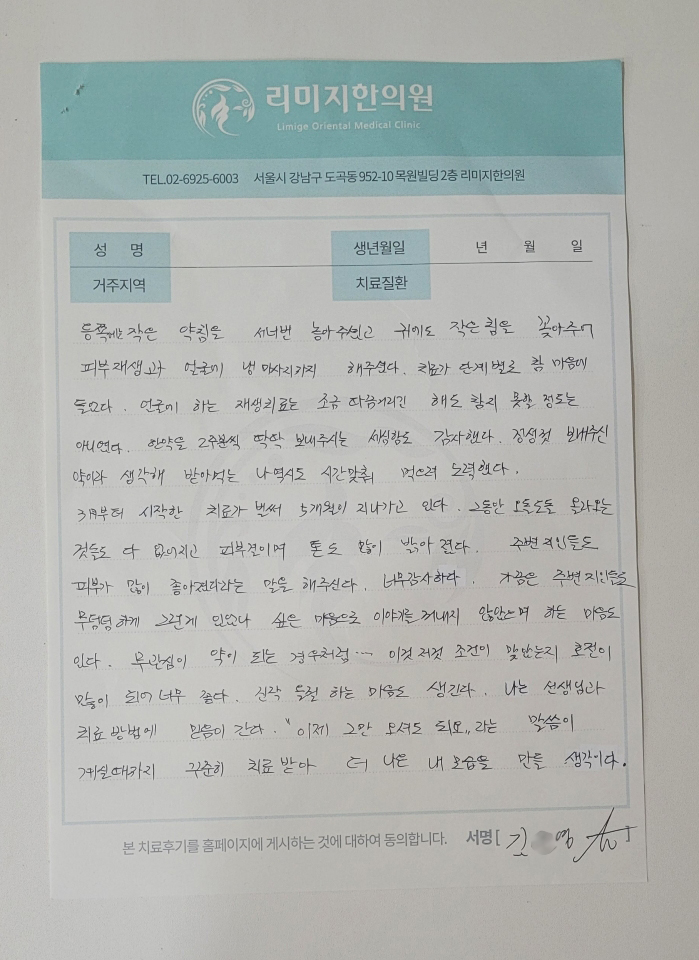 리미지한의원
Limige Oriental Medical Clinic
TEL.02-6925-6003 서울시 강남구 도곡동 952-10 목원빌딩 2층 리미지한의원
성 명 생년월일 년 월 일
거주지역 치료질환
등쪽에는 작은 약침을 서너번 놓아주셨고 귀에도 작은 침을 꽂아주어
피부재생과 얼굴에 냉 마사지까지 해주셨다. 치료가 단계별로 참 마음에
들었다. 얼굴에 하는 재생치료는 조금 따끔거리긴 해도 참지 못할 정도는
아니였다. 한약을 2주분씩 딱딱 보내주시는 세심함도 감사했다. 정성껏 보내주신
약이라 생각해 받아먹는 나 역시도 시간맞춰 먹으려 노력했다.
3月부터 시작한 치료가 벌써 5개월이 지나가고 있다. 그동안 오돌도돌 올라오는
것들도 다 없어지고 피부결이며 톤도 많이 밝아졌다. 주변 지인들도
피부가 많이 좋아졌다라는 말을 해주신다. 너무감사하다. 가끔은 주변지인들도
무덤덤하게 그런게 있었나 싶은 마음으로 이야기를 꺼내지 않았으며 하는 마음도
있다. 무관심이 약이 되는 경우처럼… 이것저것 조건이 맞았는지 호전이
많이 되어 너무 좋다. 진작 들릴 하는 마음도 생긴다. 나는 선생님과
치료 방법에 믿음이 간다. "이제 그만 오셔도 되요" 라는 말씀이
계실때까지 꾸준히 치료받아 더 나은 내 모습을 만들 생각이다.
본 치료후기를 홈페이지에 게시하는 것에 대하여 동의합니다. 서명 [ 영 ]